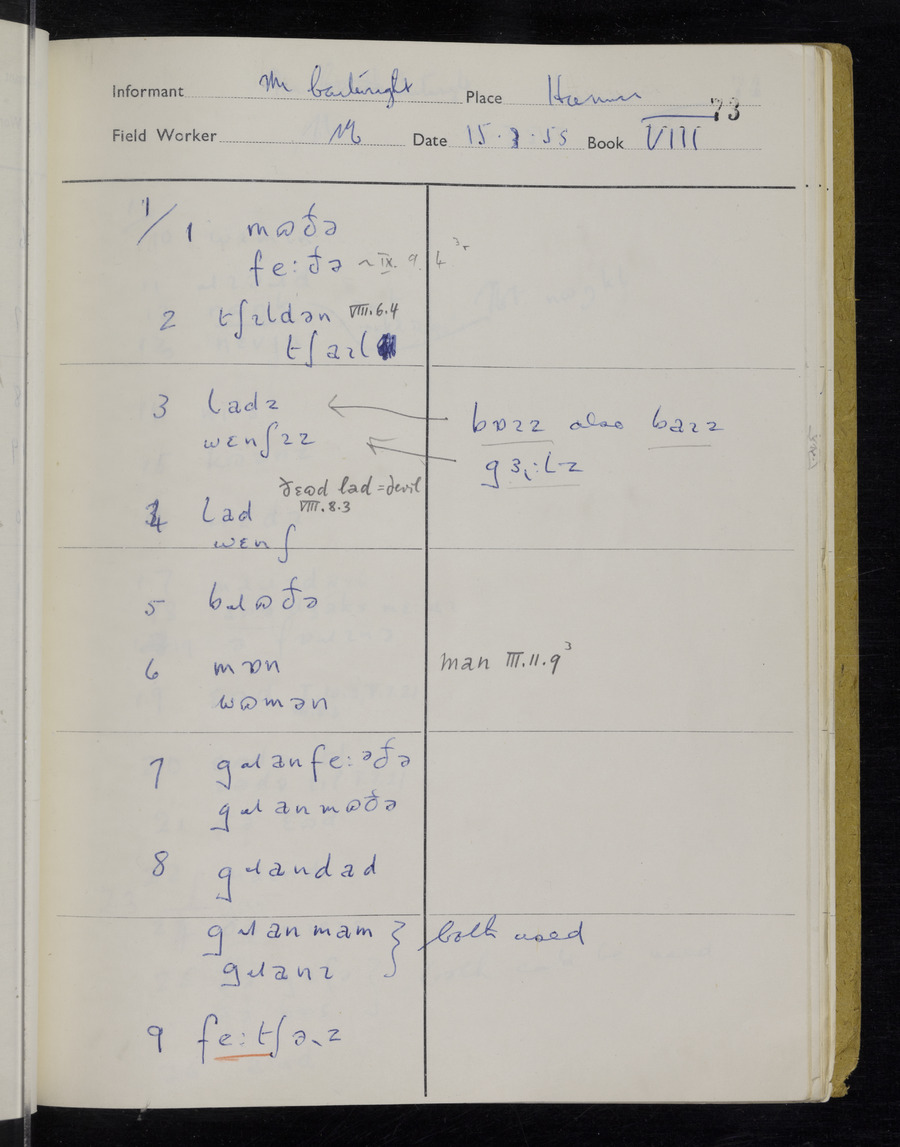 Informant Mr Place Hanmer 73
Field Worker Date 15 · 3 · 55 Book VIII
1/1 mɷðə
fe:ðə ~ IX. 9. 4 ³ʳ
2 tʃɪldən VIII.6.4
tʃaɪl
3 ladz bɒɪz also baɪz
wɛnʃɪz gɜ˞:lz
4 lad ðɛɷd lad = devil VIII.8.3
wɛnʃ
5 bɹɷðə
6 mɒn man III.11.9³
wɷmən
7 gɹanfe:ᵊðə
gɹanmɷðə
8 gɹandad
gɹanmam } both used
gɹanɪ
9 fe:tʃəz